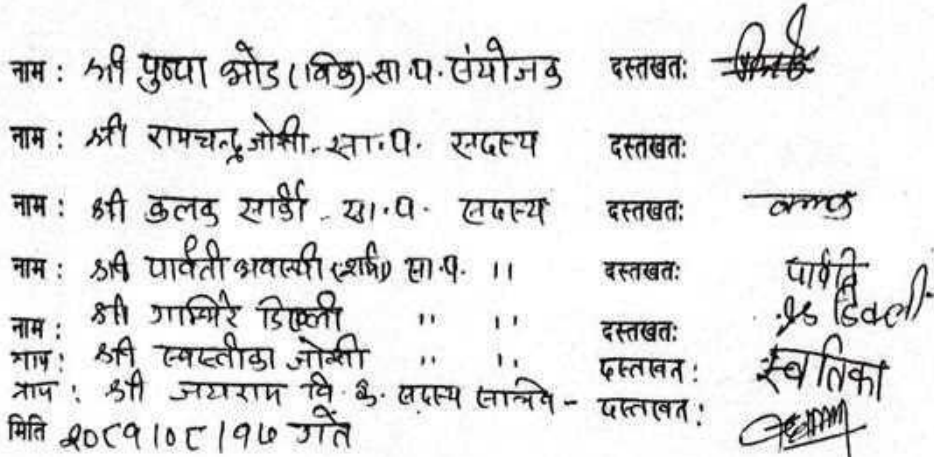 नाम : श्री पुष्पा ओड (विक) सा.प. संयोजक दस्तखतः
नाम : श्री रामचन्द्र जोशी सा.प. सदस्य दस्तखतः
नाम : श्री कलक सार्की सा.प. सदस्य दस्तखतः
नाम : श्री पार्वती अवस्थी (शर्मा) सा.प. " दस्तखतः पार्वति
नाम : श्री गाम्भिरे डिक्ली " " दस्तखतः डिक्ली
नाम : श्री स्वस्तीका जोशी " " दस्तखत : स्वतिका
नाम : श्री जयराम वि.क. सदस्य - दस्तखत :
मिति २०८१।०८।१७ गते